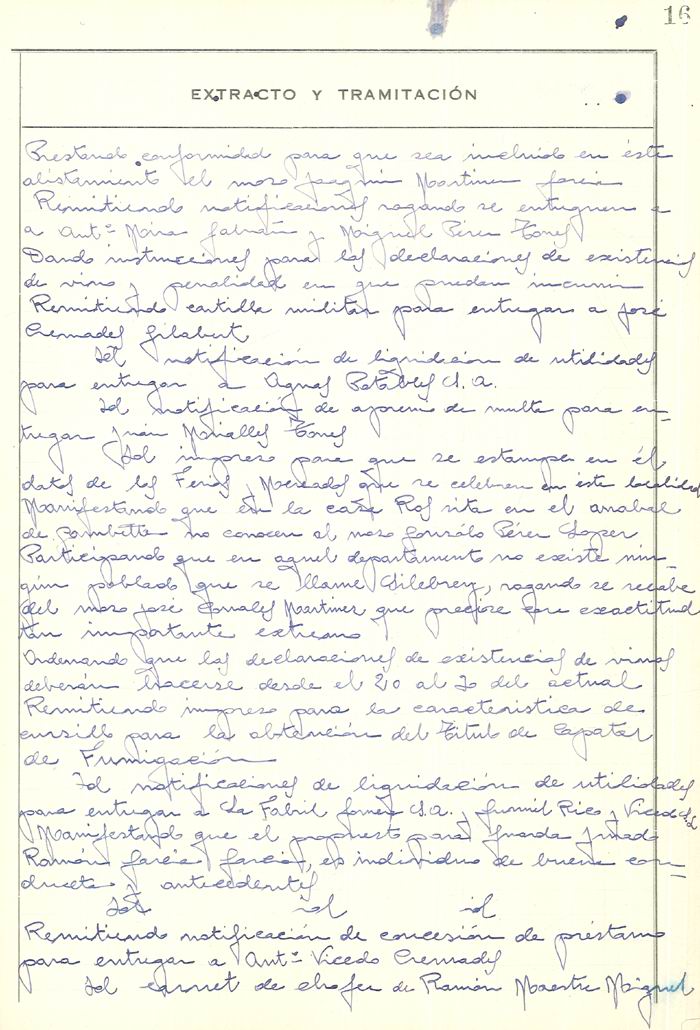 16
EXTRACTO Y TRAMITACIÓN
Prestando conformidad para que sea incluido en éste
alistamiento el mozo Joaquin Martinez Garcia
Remitiendo notificaciones rogando se entreguen a
a Antº Mira y Miguel Pérez Torres
Dando instrucciones para las declaraciones de existencias
de vino y penalidad en que puedan incurrir
Remitiendo cartilla militar para entregar a José
Cremades Gilabert
Id notificación de liquidación de utilidades
para entregar a Aguas Potables S.A.
Id notificación de apremio de multa para en-
tregar Juán Miralles Torres
Id impreso para que se estampe en él
datos de las Ferias y Mercados que se celebren en esta localidad
Manifestando que en la casa Ros sita en el arrabal
de no conocen al mozo Gonzálo Pérez Lopez
Participando que en aquel departamento no existe nin-
gún poblado que se llame rogando se recabe
del mozo José Martinez que precise con exactitud
tan importante extremo
Ordenando que las declaraciones de existencias de vinos
deberán hacerse desde el 20 al 30 del actual
Remitiendo impreso para la caracteristica de
cursillo para la obtención del Titulo de Capataz
de Fumigación
Id notificaciones de liquidación de utilidades
para entregar a La Fabril S.A., Rico y Vicedo
Manifestando que el propuesto para Guarda Jurado
Ramón Garcia Garcia, es individuo de buena con-
ducta y antecedentes
Id id id
Remitiendo notificación de concesión de préstamo
para entregar a Antº Vicedo Cremades
Id carnet de chofer de Ramón Maestre Miguel